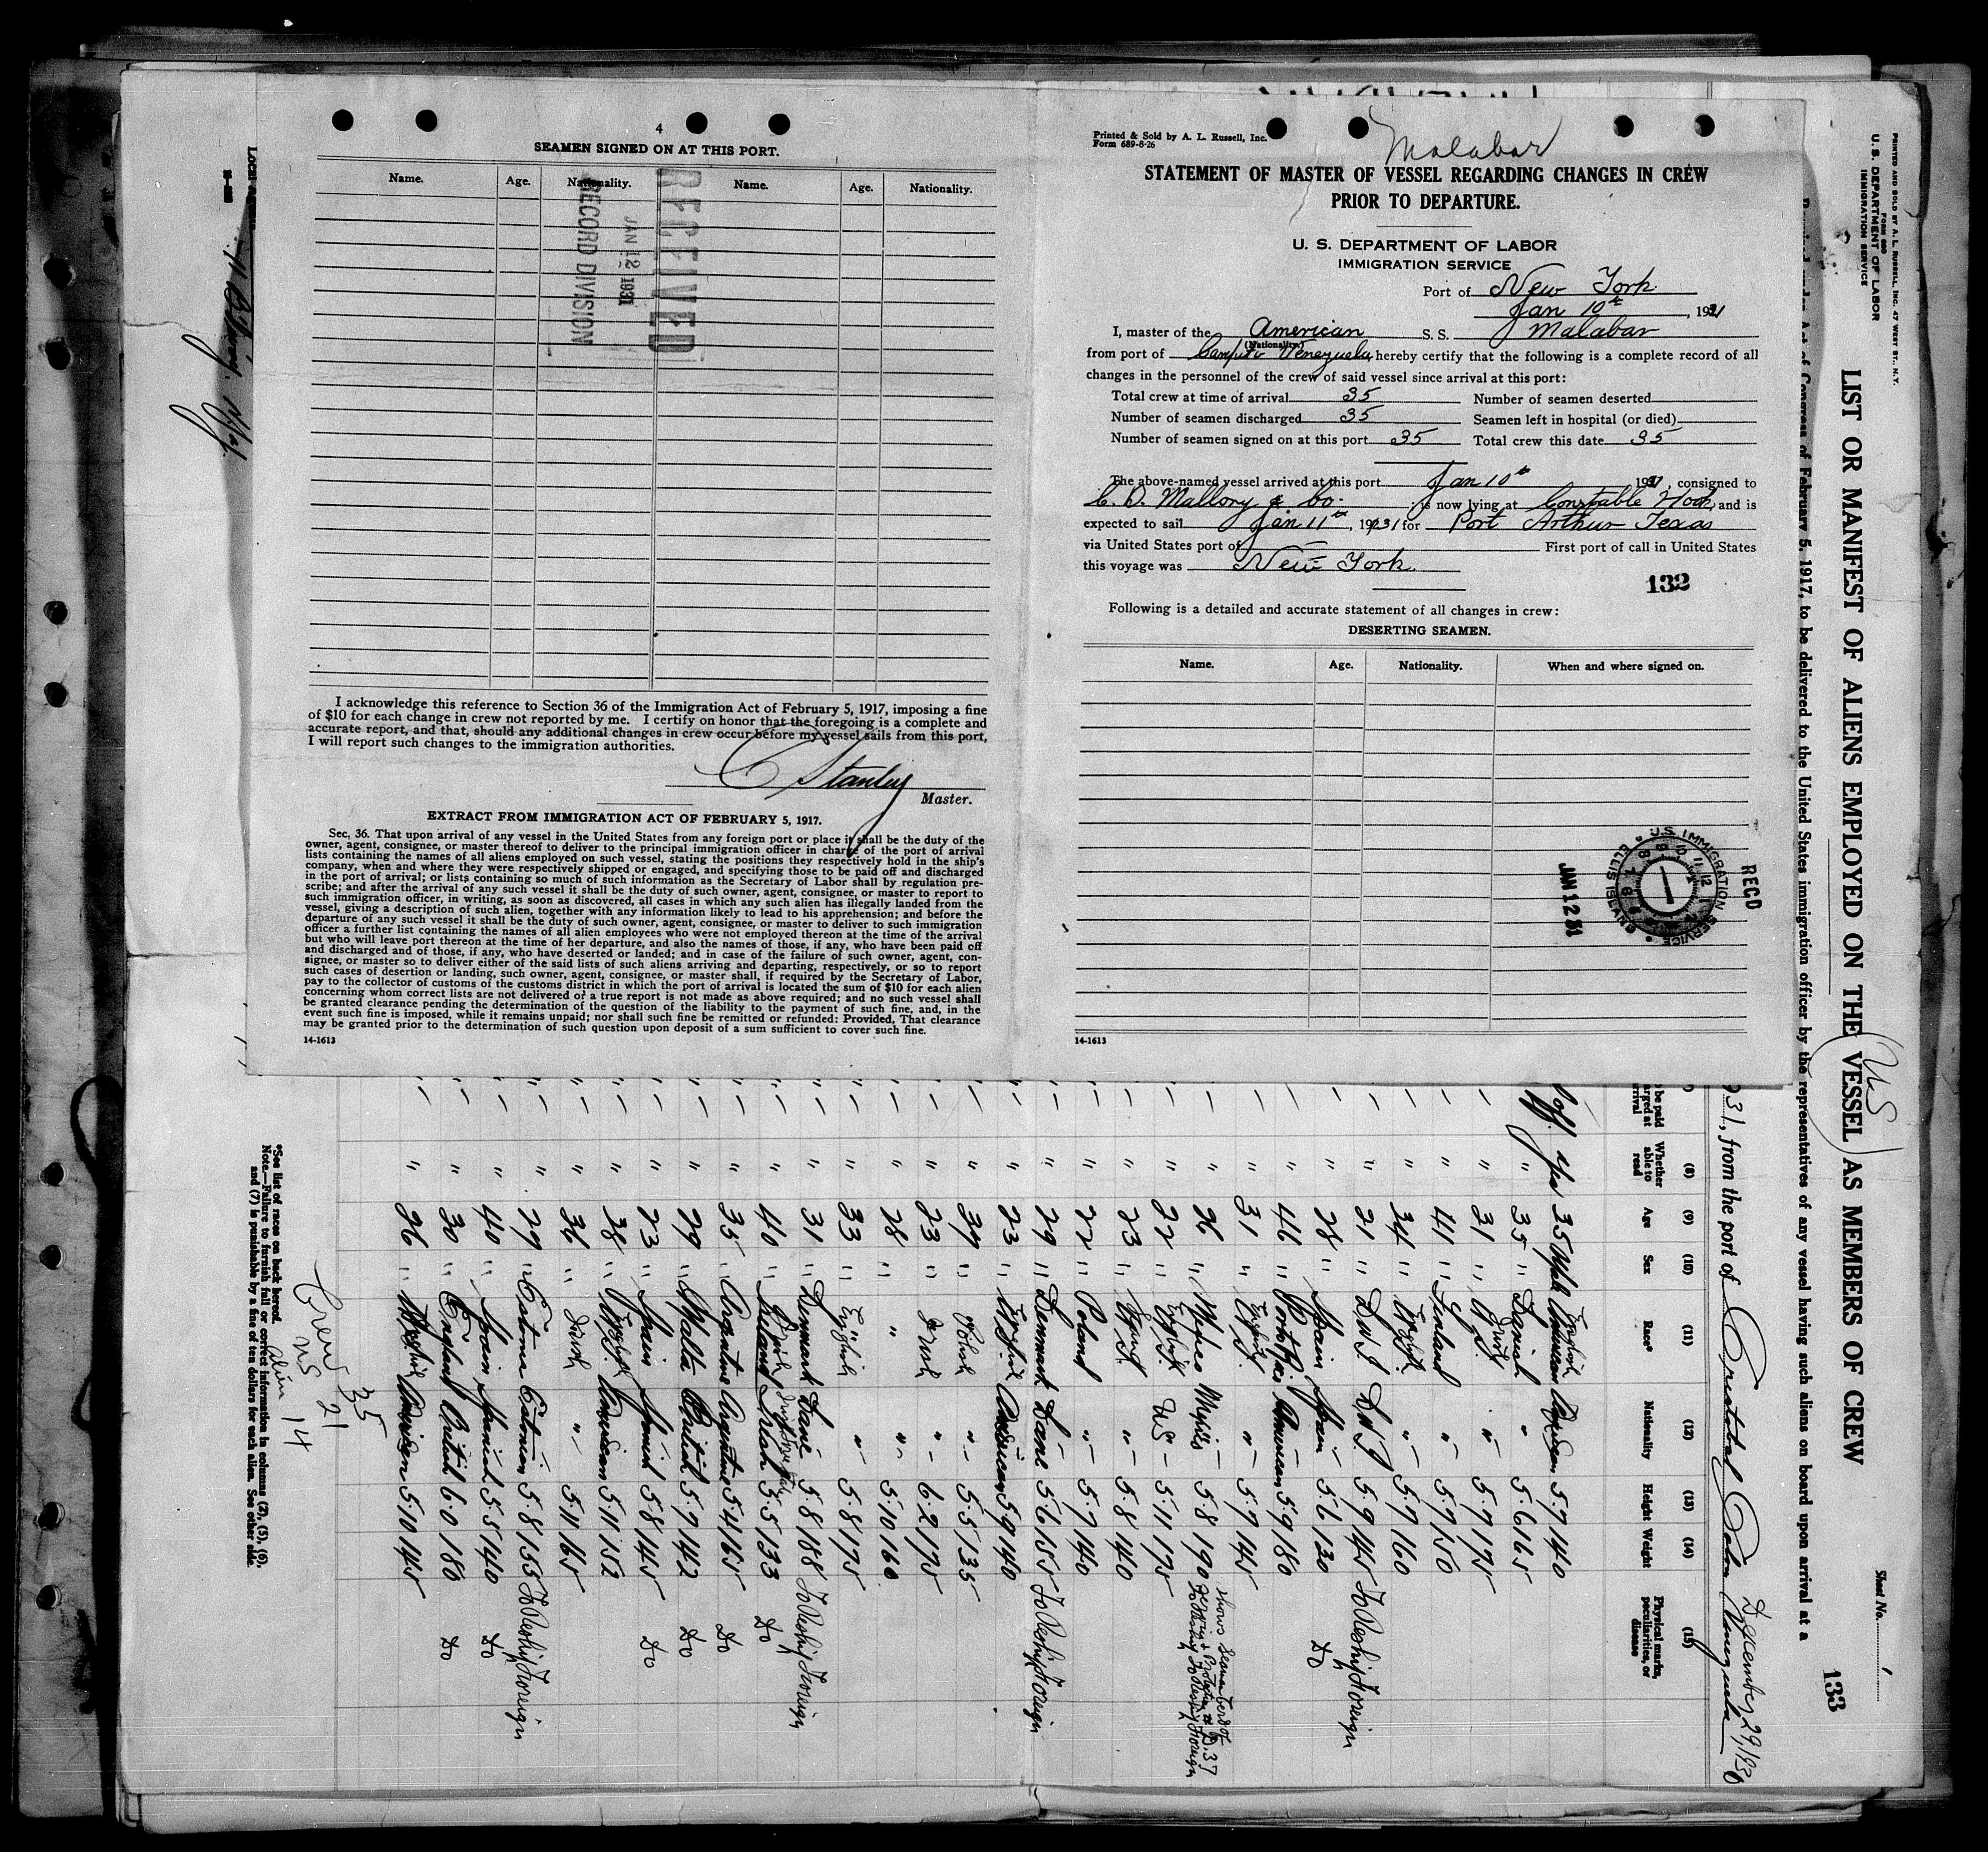 4
SEAMEN SIGNED ON AT THIS PORT.
Name. Age. Nationality. Name. Age. Nationality.
RECEIVED
JAN 12 1931
RECORD DIVISION
I acknowledge this reference to Section 36 of the Immigration Act of February 5, 1917, imposing a fine
of $10 for each change in crew not reported by me. I certify on honor that the foregoing is a complete and
accurate report, and that, should any additional changes in crew occur before my vessel sails from this port,
I will report such changes to the immigration authorities.
C Stanley
Master.
EXTRACT FROM IMMIGRATION ACT OF FEBRUARY 5, 1917.
Sec. 36. That upon arrival of any vessel in the United States from any foreign port or place it shall be the duty of the
owner, agent, consignee, or master thereof to deliver to the principal immigration officer in charge of the port of arrival
lists containing the names of all aliens employed on such vessel, stating the positions they respectively hold in the ship's
company, when and where they were respectively shipped or engaged, and specifying those to be paid off and discharged
in the port of arrival; or lists containing so much of such information as the Secretary of Labor shall by regulation pre-
scribe; and after the arrival of any such vessel it shall be the duty of such owner, agent, consignee, or master to report to
such immigration officer, in writing, as soon as discovered, all cases in which any such alien has illegally landed from the
vessel, giving a description of such alien, together with any information likely to lead to his apprehension; and before the
departure of any such vessel it shall be the duty of such owner, agent, consignee, or master to deliver to such immigration
officer a further list containing the names of all alien employees who were not employed thereon at the time of the arrival
but who will leave port thereon at the time of her departure, and also the names of those, if any, who have been paid off
and discharged and of those, if any, who have deserted or landed; and in case of the failure of such owner, agent, con-
signee, or master so to deliver either of the said lists of such aliens arriving and departing, respectively, or so to report
such cases of desertion or landing, such owner, agent, consignee, or master shall, if required by the Secretary of Labor,
pay to the collector of customs of the customs district in which the port of arrival is located the sum of $10 for each alien
concerning whom correct lists are not delivered or a true report is not made as above required; and no such vessel shall
be granted clearance pending the determination of the question of the liability to the payment of such fine, and, in the
event such fine is imposed, while it remains unpaid; nor shall such fine be remitted or refunded: Provided, That clearance
may be granted prior to the determination of such question upon deposit of a sum sufficient to cover such fine.
14-1613
Printed & Sold by A. L. Russell, Inc.
Form 689-8-26
Malabar
STATEMENT OF MASTER OF VESSEL REGARDING CHANGES IN CREW
PRIOR TO DEPARTURE.
U. S. DEPARTMENT OF LABOR
IMMIGRATION SERVICE
Port of New York
Jan 10th, 1931
I, master of the American S. S. Malabar
(Nationality.)
from port of Venezuela hereby certify that the following is a complete record of all
changes in the personnel of the crew of said vessel since arrival at this port:
Total crew at time of arrival 35 Number of seamen deserted
Number of seamen discharged 35 Seamen left in hospital (or died)
Number of seamen signed on at this port 35 Total crew this date 35
The above-named vessel arrived at this port Jan 10th 1931, consigned to
C. D. Mallory & Co. is now lying at Constable Hook, and is
expected to sail Jan 11th, 1931 for Port Arthur Texas
via United States port of First port of call in United States
this voyage was New York.
132
Following is a detailed and accurate statement of all changes in crew:
DESERTING SEAMEN.
Name. Age. Nationality. When and where signed on.
REC'D
U.S. IMMIGRATION SERVICE ELLIS ISLAND
JAN 12 31
14-1613
PRINTED AND SOLD BY A. L. RUSSELL, INC., 47 WEST ST., N.Y.
FORM 680
U. S. DEPARTMENT OF LABOR
IMMIGRATION SERVICE
Sheet No. 1
133
LIST OR MANIFEST OF ALIENS EMPLOYED ON THE VESSEL AS MEMBERS OF CREW
US
Act of Congress of February 5, 1917, to be delivered to the United States immigration officer by the representatives of any vessel having such aliens on board upon arrival at a
931, from the port of Cristobal Colon Venezuela December 29, 1930
(8) (9) (10) (11) (12) (13) (14) (15)
Whether able to read
Age
Sex
Race*
Nationality
Height
Weight
Physical marks, peculiarities, or disease
35 5.7 140
" 35 " Danish " 5.6 165
" 31 " " 5.9 175
" 41 " Finland " 5.9 150
" 34 " " 5.7 160
" 21 " 5.9 145 To Reship Foreign
" 28 " Spain Spain 5.6 130 Do
" 46 " Porto Rico American 5.9 180
" 31 " " 5.7 145
" 26 " 5.8 190
" 22 " US 5.11 175
" 23 " " 5.8 140
" 22 " Poland " 5.7 140
" 29 " Denmark Dane 5.6 155 To Reship Foreign
" 23 " American 5.9 140
" 39 " " 5.5 135
" 23 " Irish " 6.2 175
" 28 " " " 5.10 160
" 33 " English " 5.8 175
" 31 " Denmark Dane 5.8 188 To Reship Foreign
" 40 " Ireland 5.5 133 Do
" 35 " Argentine Argentine 5.4 165 Do
" 29 " Malta British 5.7 142 Do
" 23 " Spain Spanish 5.8 145 Do
" 38 " American 5.11 152
" 36 " Irish " 5.11 165
" 29 " Estonia Estonian 5.8 155 To Reship Foreign
" 40 " Spain Spanish 5.5 140 Do
" 30 " England British 6.0 180 Do
" 26 " 5.10 145
Crew 35
US 21
Alien 14
*See list of races on back hereof.
Note.—Failure to furnish full or correct information in columns (2), (5), (6),
and (7) is punishable by a fine of ten dollars for each alien. See other side.